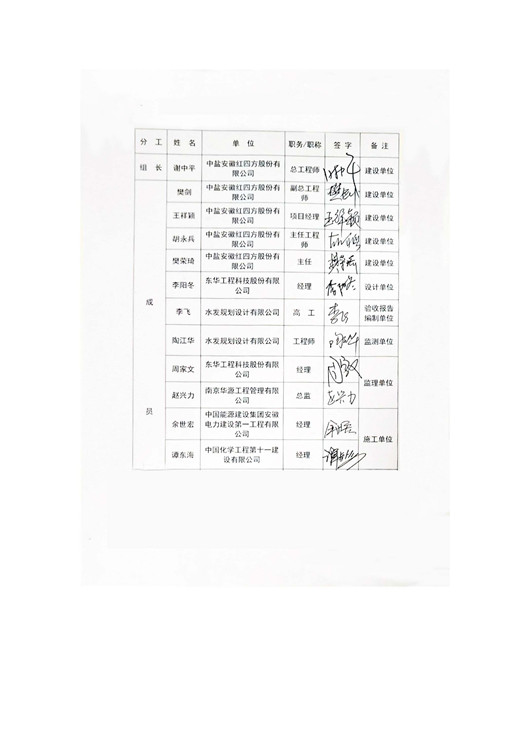 分 工 姓 名 单 位 职务/职称 签 字 备 注
组 长 谢中平 中盐安徽红四方股份有限公司 总工程师 建设单位
成员
樊剑 中盐安徽红四方股份有限公司 副总工程师 建设单位
王祥颖 中盐安徽红四方股份有限公司 项目经理 王祥颖 建设单位
胡永兵 中盐安徽红四方股份有限公司 主任工程师 建设单位
樊荣琦 中盐安徽红四方股份有限公司 主任 建设单位
李阳冬 东华工程科技股份有限公司 经理 设计单位
李飞 水发规划设计有限公司 高 工 李飞 验收报告编制单位
陶江华 水发规划设计有限公司 工程师 监测单位
周家文 东华工程科技股份有限公司 经理 监理单位
赵兴力 南京华源工程管理有限公司 总监 赵兴力
余世宏 中国能源建设集团安徽电力建设第一工程有限公司 经理 施工单位
谭东海 中国化学工程第十一建设有限公司 经理